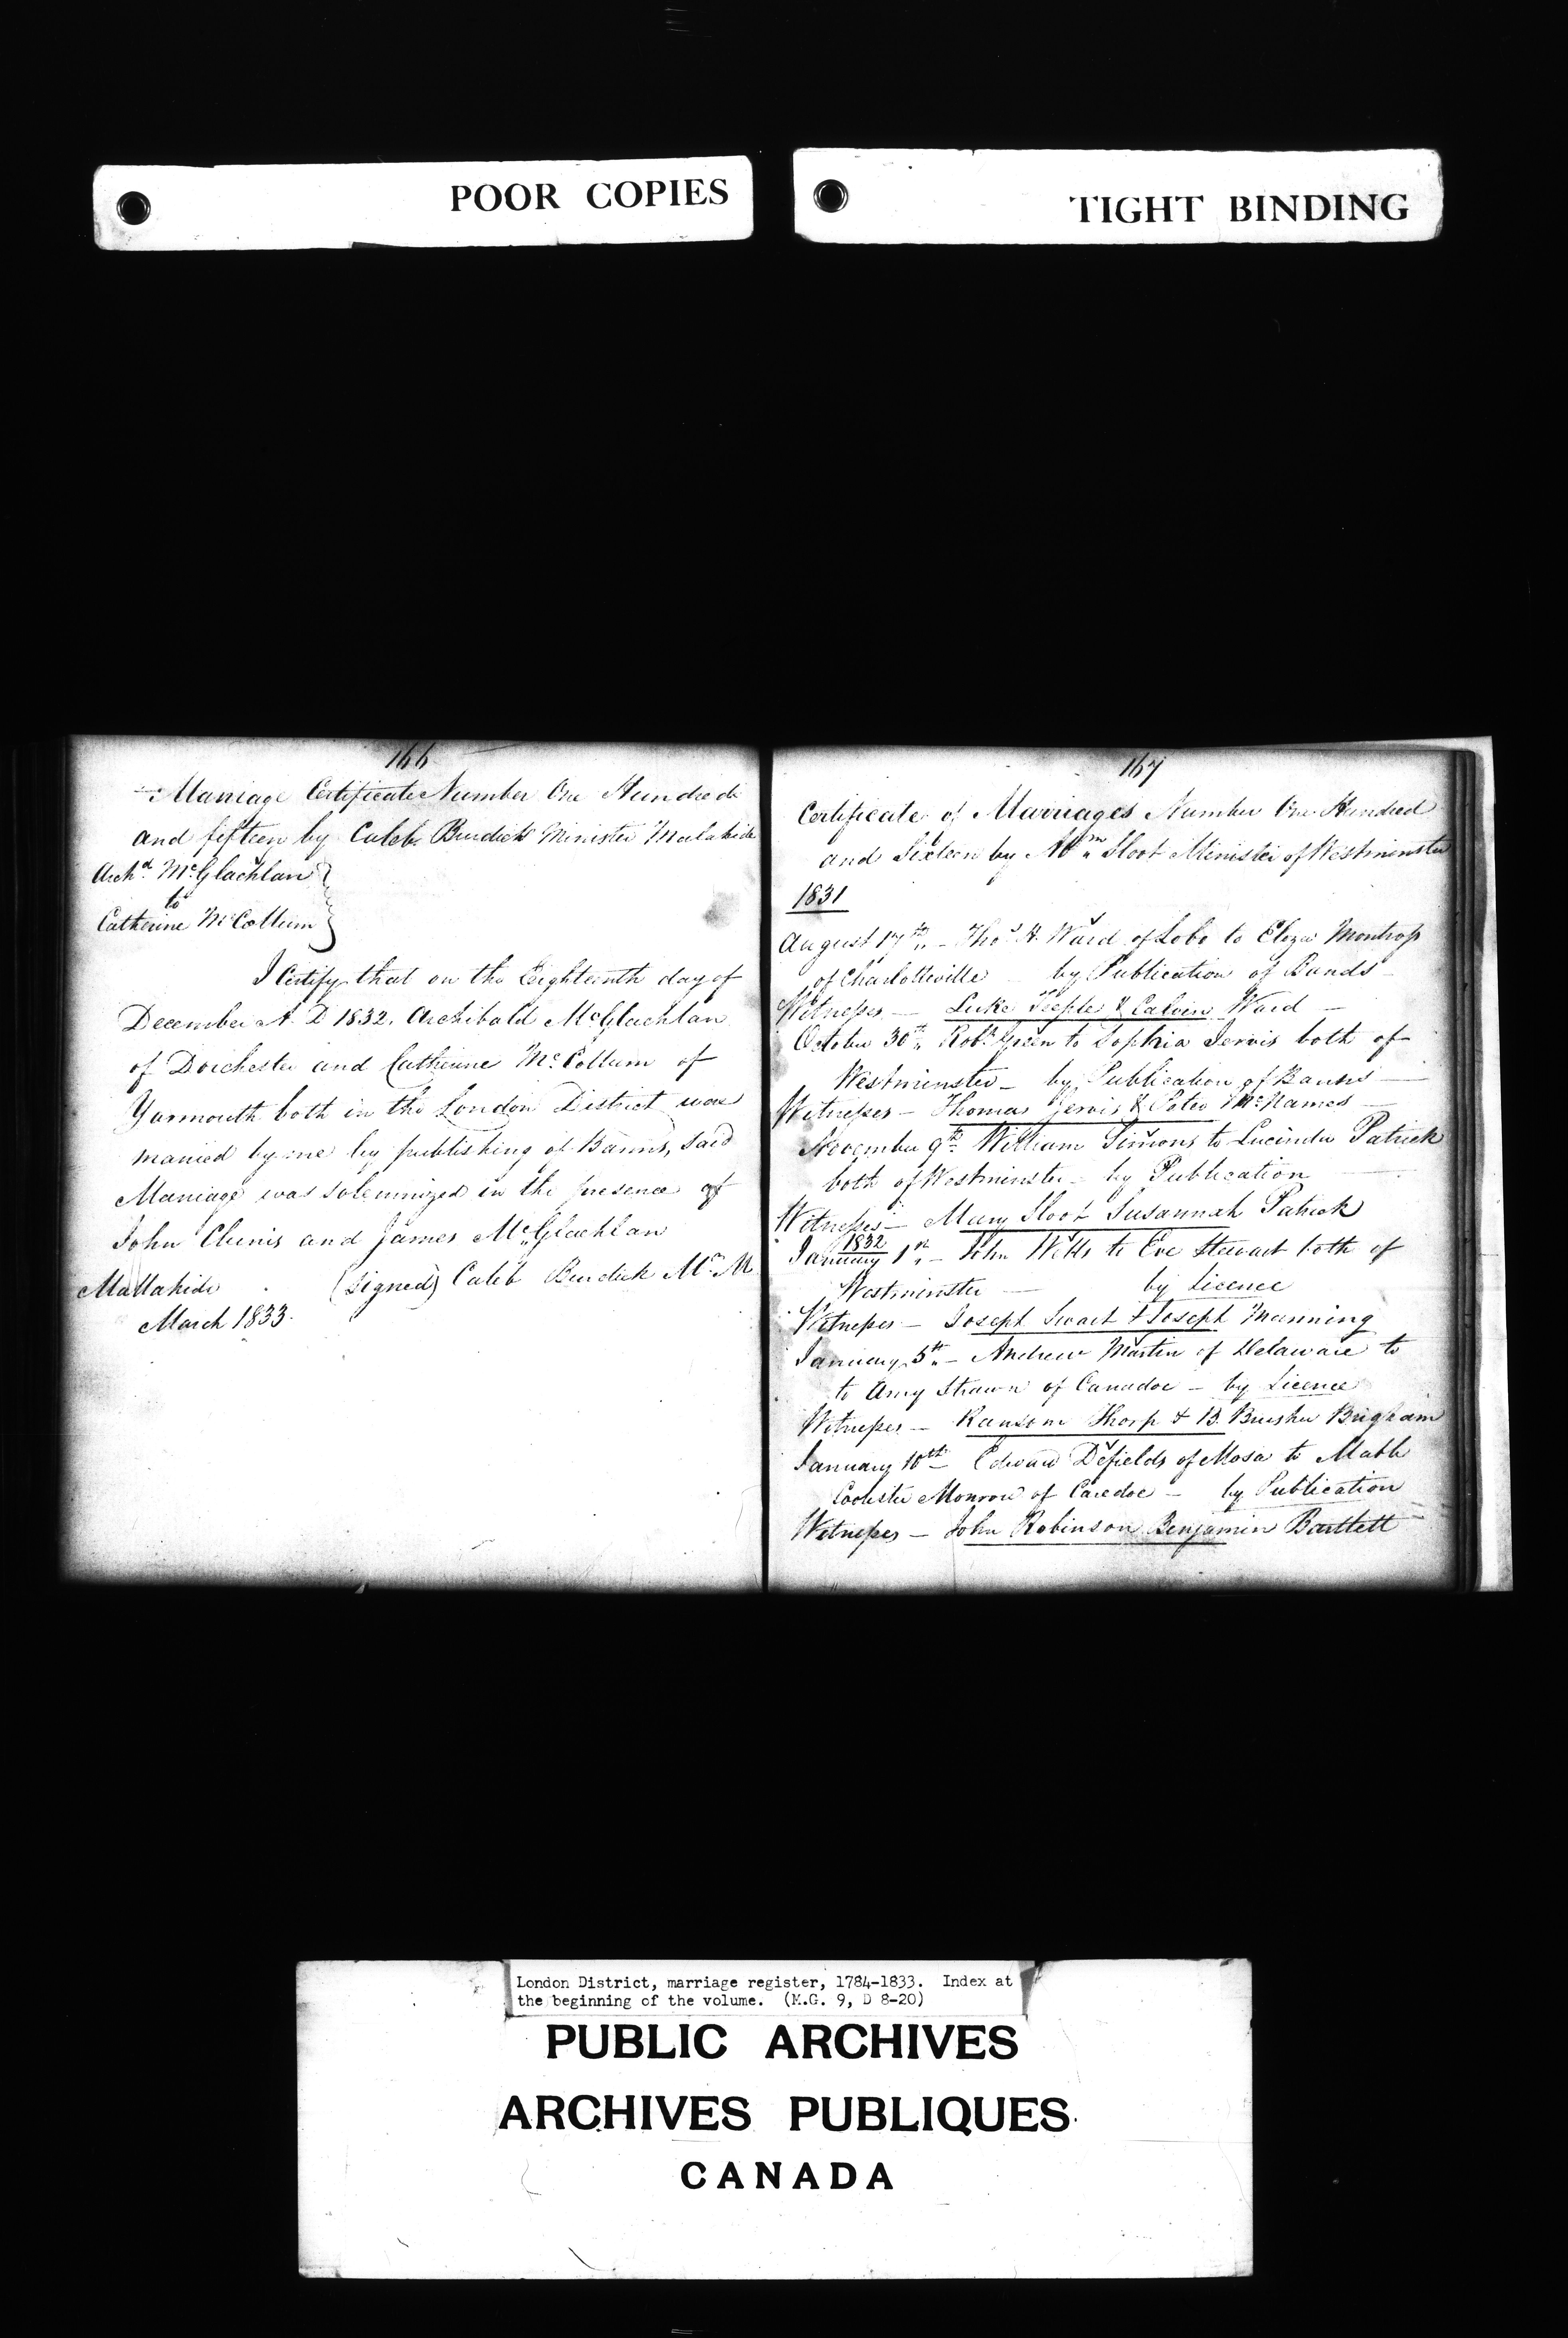 POOR COPIES
TIGHT BINDING
166
Marriage Certificate Number One Hundred
and fifteen by Caleb Burdick Minister Malahide
Archd. McGlachlan
to
Catherine McCollum
I Certify that on the Eighteenth day of
December A. D 1832. Archibald McGlachlan
of Dorchester and Catherine McCollum of
Yarmouth both in the London District was
married by me by publishing of Banns, Said
Marriage was solemnized in the presence of
John Clunis and James McGlachlan
Mallahide (Signed) Caleb Burdick
March 1833.
167
Certificate of Marriages Number One Hundred
and Sixteen by Wm. Sloot Minister of Westminster
1831
August 17th. - Thos. H. Ward of Lobo to Eliza Montross
of Charlotteville by Publication of Bands -
Witnesses - Luke Teeple & Calvin Ward -
October 30th. Robt. Green to Sophia Jervis both of
Westminster - by Publication of Banns -
Witnesses - Thomas Jervis & Peter McNames -
November 9th. William Simons to Lucinda Patrick
both of Westminster - by Publication
Witnesses - Mary Sloot Susannah Patrick
1832
January 1st. - John Wells to Eve Stewart both of
Westminster - by Licence
Witnesses - Joseph Swart & Joseph Manning
January 5th. - Andrew Martin of Delaware to
to Amy Strawn of Caradoc - by Licence
Witnesses - Ransom Thorp & B. Brewster Brigham
January 10th - Edward Defields of Mosa to
Monrow of Caredoc - by Publication
Witnesses - John Robinson Benjamin Bartlett
London District, marriage register, 1784-1833. Index at
the beginning of the volume. (M.G. 9, D 8-20)
PUBLIC ARCHIVES
ARCHIVES PUBLIQUES
CANADA